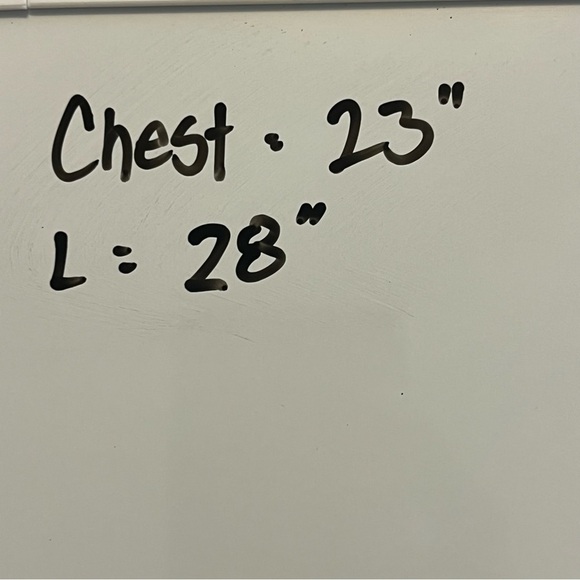 Chest = 23"
L = 28"